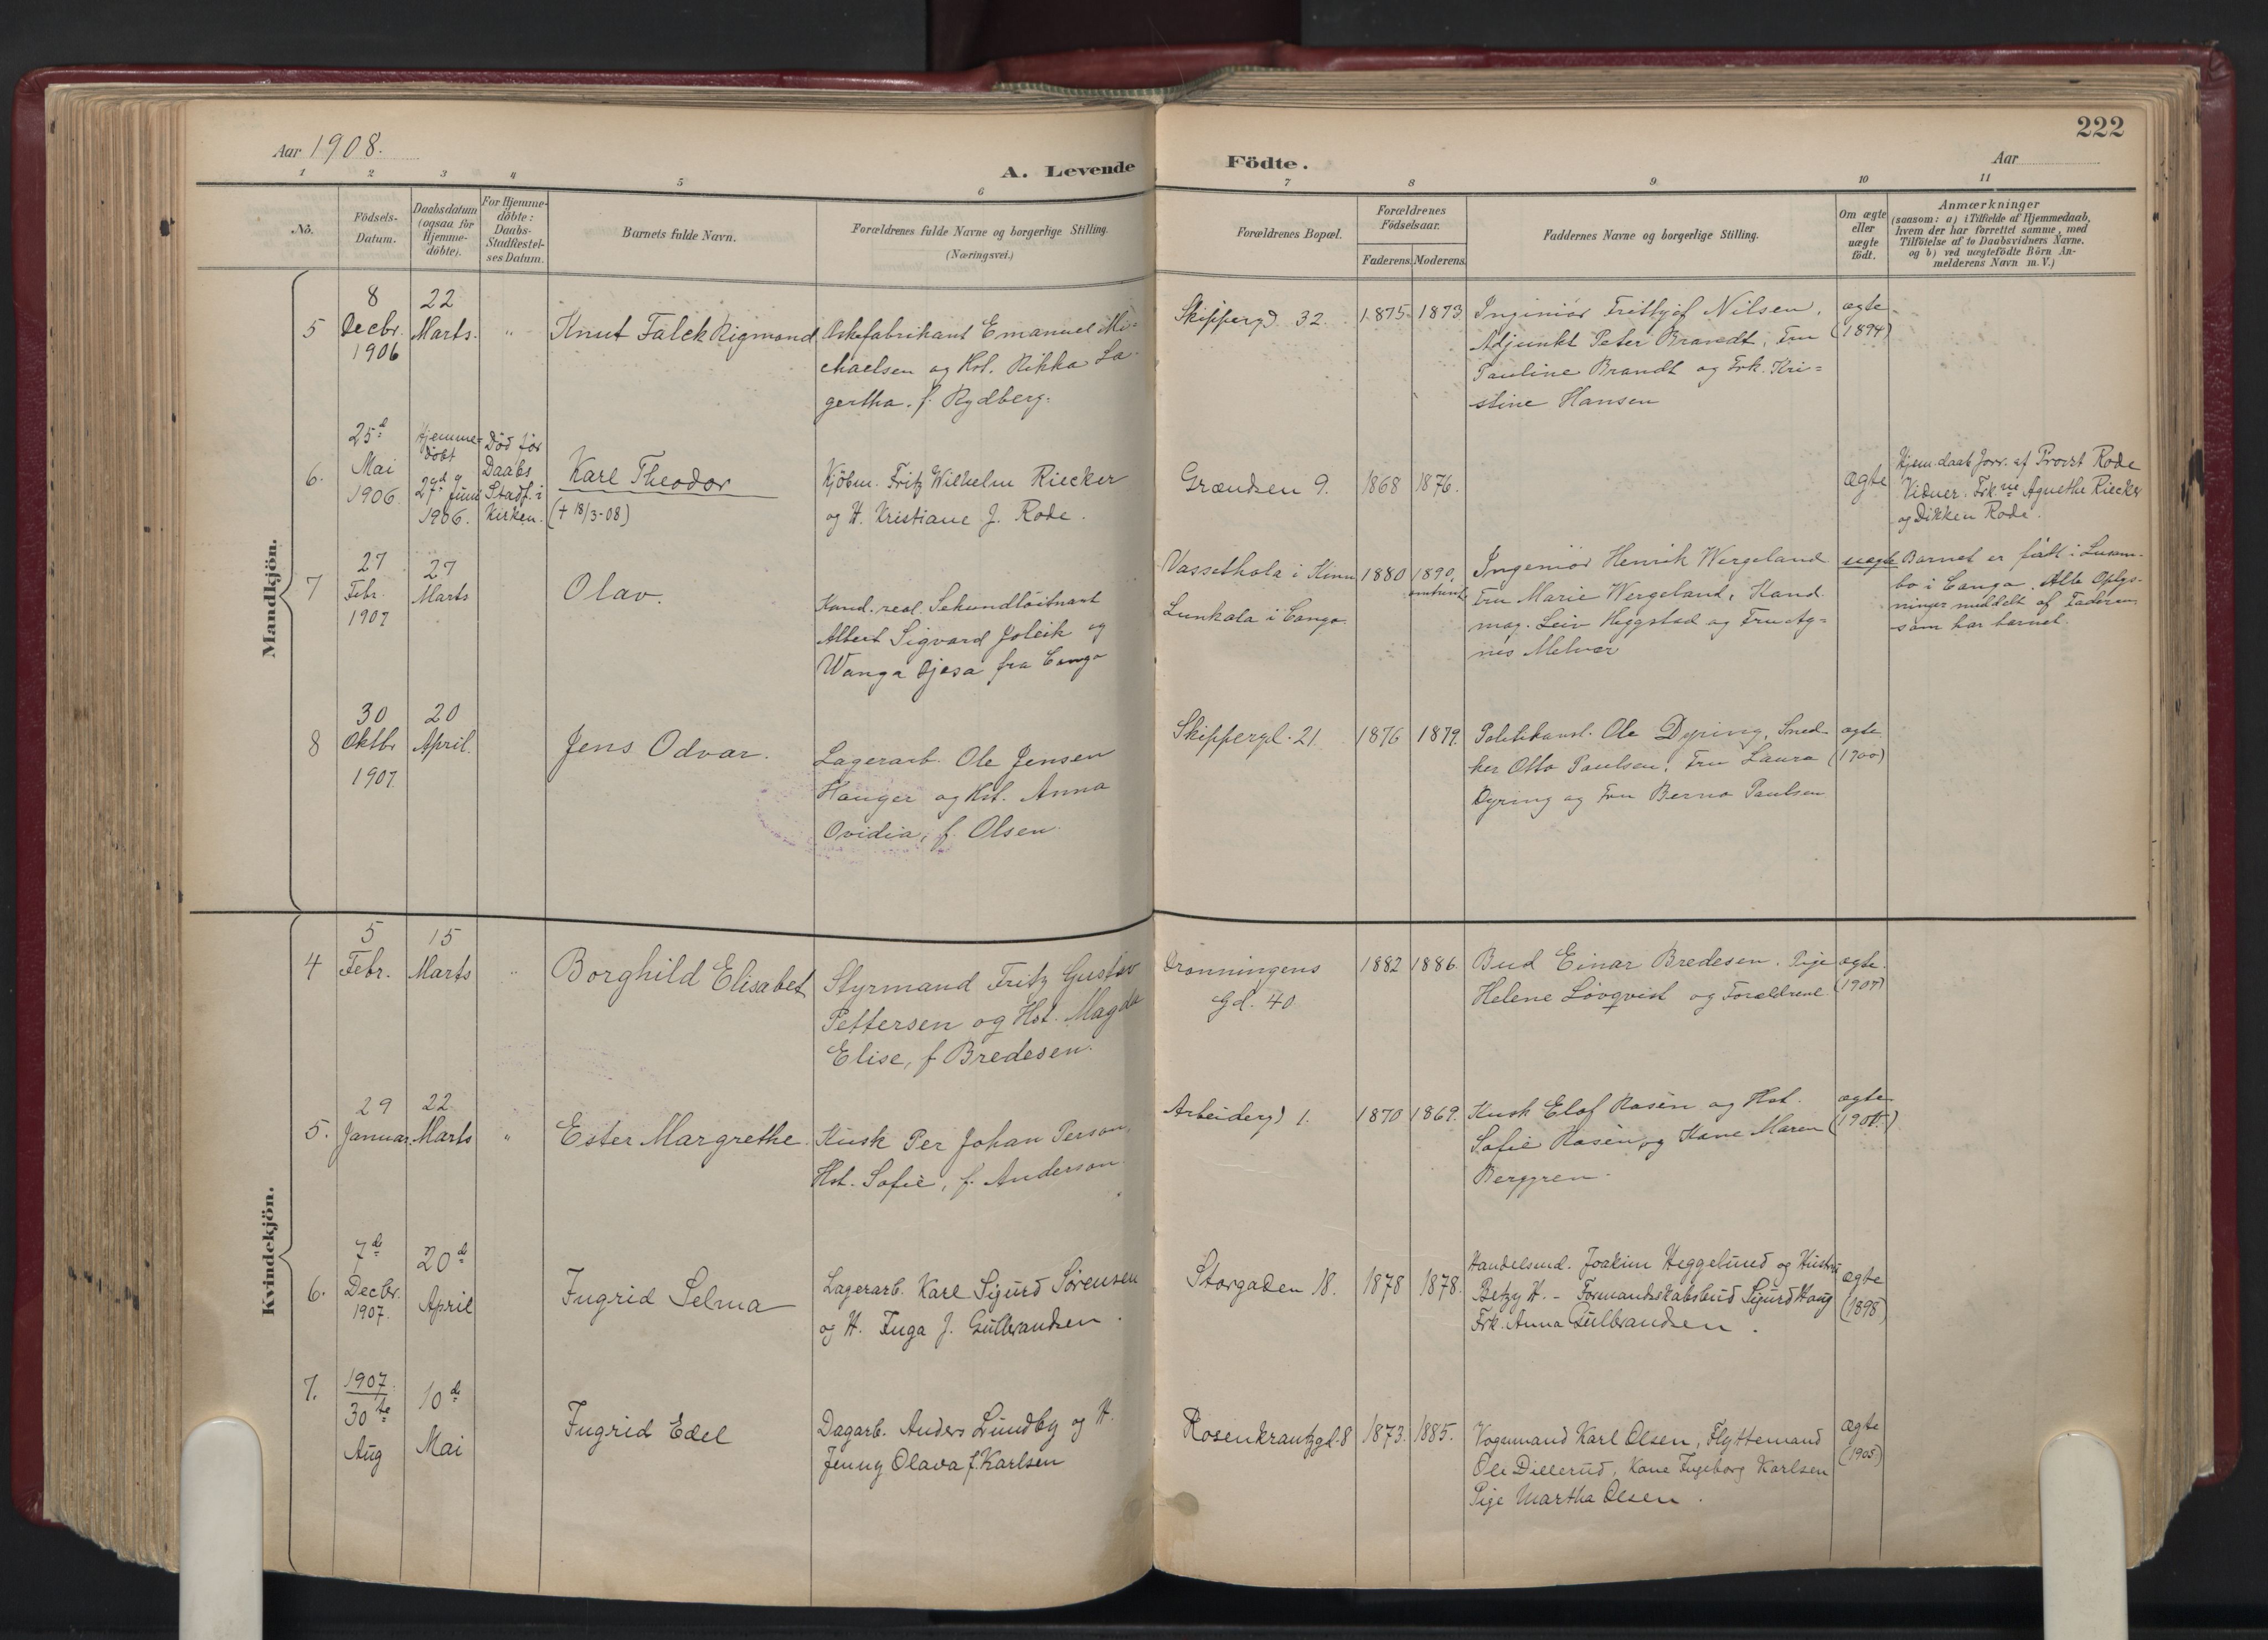 Aar 1908.
A. Levende Födte.
Aar
222
1 2 3 4 5 6 7 8 9 10 11
No.
Födsels-
Datum.
Daabsdatum
(ogsaa for
Hjemme-
döbte).
For Hjemme-
döbte:
Daabs-
Stadfæstel-
ses Datum.
Barnets fulde Navn.
Forældrenes fulde Navne og borgerlige Stilling.
(Næringsvei.)
Forældrenes Bopæl.
Forældrenes
Födselsaar.
Faderens. Moderens.
Faddernes Navne og borgerlige Stilling.
Om ægte
eller
uægte
födt.
Anmærkninger
(saasom: a) i Tilfælde af Hjemmedaab,
hvem der har forrettet samme, med
Tilföielse af to Daabsvidners Navne.
og b) ved uægtefödte Börn An-
melderens Navn m. V.)
Mandkjön.
5
8
Decbr.
1906
22
Marts.
"
Knut Falck Rigmond
Æskefabrikant Emanuel Mi-
chaelsen og Hst. Rikka La-
gertha, f. Rydberg.
Skippergd. 32.
1875. 1873.
Ingeniör Frithjof Nilsen,
Adjunkt Peter Brandt, Fru
Pauline Brandt og Frk. Kri-
stine Hansen
ægte
(1894)
6.
25d
Mai
1906.
Hjemme-
döbt
27d Juni
1906.
Död för
Daabs
Stadf. i
Kirken.
Karl Theodor
(+ 18/3-08)
Kjöbm. Fritz Wilhelm Riecker
og H. Kristiane J. Rode.
Grændsen 9.
1868 1876.
ægte
Hjem.daab forr. af Provst Rode
Vidner. Frkne Agnethe Riecker
og Dikken Rode.
7
27
Febr.
1907
27
Marts
Olav.
Kand. real. Sekundlöitnant
Albert Sigvard Joleik og
Wanga Djesa fra Congo
Vassethola i Kinn
Lunkala i Congo.
1880 1890,
omtrent
Ingeniör Henrik Wergeland
Fru Marie Wergeland, Kand.
mag. Leiv Heggstad og Fru Ag-
nes Melvær
uægte
Barnet er födt i Lusam-
bo i Congo. Alle Oplys-
ninger meddelt af Faderen
som har barnet.
8
30
Oktbr
1907.
20
April.
Jens Odvar.
Lagerarb. Ole Jensen
Hauger og Hst. Anna
Ovidia, f. Olsen.
Skippergd. 21.
1876 1879.
Politikonst. Ole Dyring, Sned-
ker Otto Paulsen, Fru Laura
Dyring og Fru Berna Paulsen
ægte
(1900)
Kvindekjön.
4
5
Febr.
15
Marts
"
Borghild Elisabet
Styrmand Fritz Gustav
Pettersen og Hst. Magda
Elise, f Bredesen.
Dronningens
Gd. 40.
1882 1886.
Bud Einar Bredesen. Pige
Helene Lövqvist og Forældrene.
ægte.
(1907)
5.
29
Januar.
22
Marts
"
Ester Margrethe.
Kusk Per Johan Person,
Hst. Sofie, f. Anderson.
Arbeidergd 1.
1870 1869.
Kusk Elof Rosèn og Hst.
Sofie Rosèn, og Kone Maren
Berggren.
ægte
6.
7de
Decbr.
1907.
20de
April
Ingrid Selma
Lagerarb. Karl Sigurd Sörensen
og H. Inga J. Gulbrandsen.
Storgaden 18.
1878 1878.
Handelsmd. Joakim Heggelund og Hustru
Betzy H. - Formandskabsbud Sigurd Haug
Frk. Anna Gulbrandsen.
ægte
(1898)
7.
1907.
30te
Aug
10de
Mai
Ingrid Edel
Dagarb. Anders Lundby og H.
Jenny Olava f. Karlsen
Rosenkrantzgd. 8
1873. 1885.
Vognmand Karl Olsen, Flyttemand
Ole Dillerud, Kone Ingeborg Karlsen
Pige Martha Olsen.
ægte
(1905)